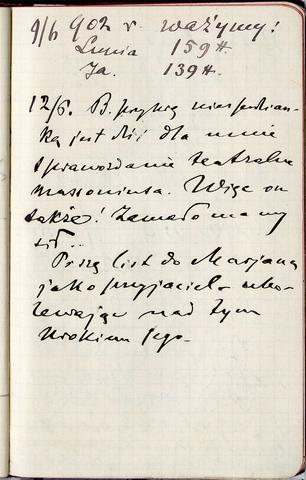 9/6 902 r. ważymy!
Lunia 159 ℔.
Ja. 139 ℔.
12/6. B. przykrą niespodzian-
ką jest dziś dla mnie
sprawozdanie teatralne
Massoniusa. Więc on
także! Zamało mamy
sił..
Piszę list do Marjana
jako przyjaciel - ubo-
lewając nad tym
krokiem jego.